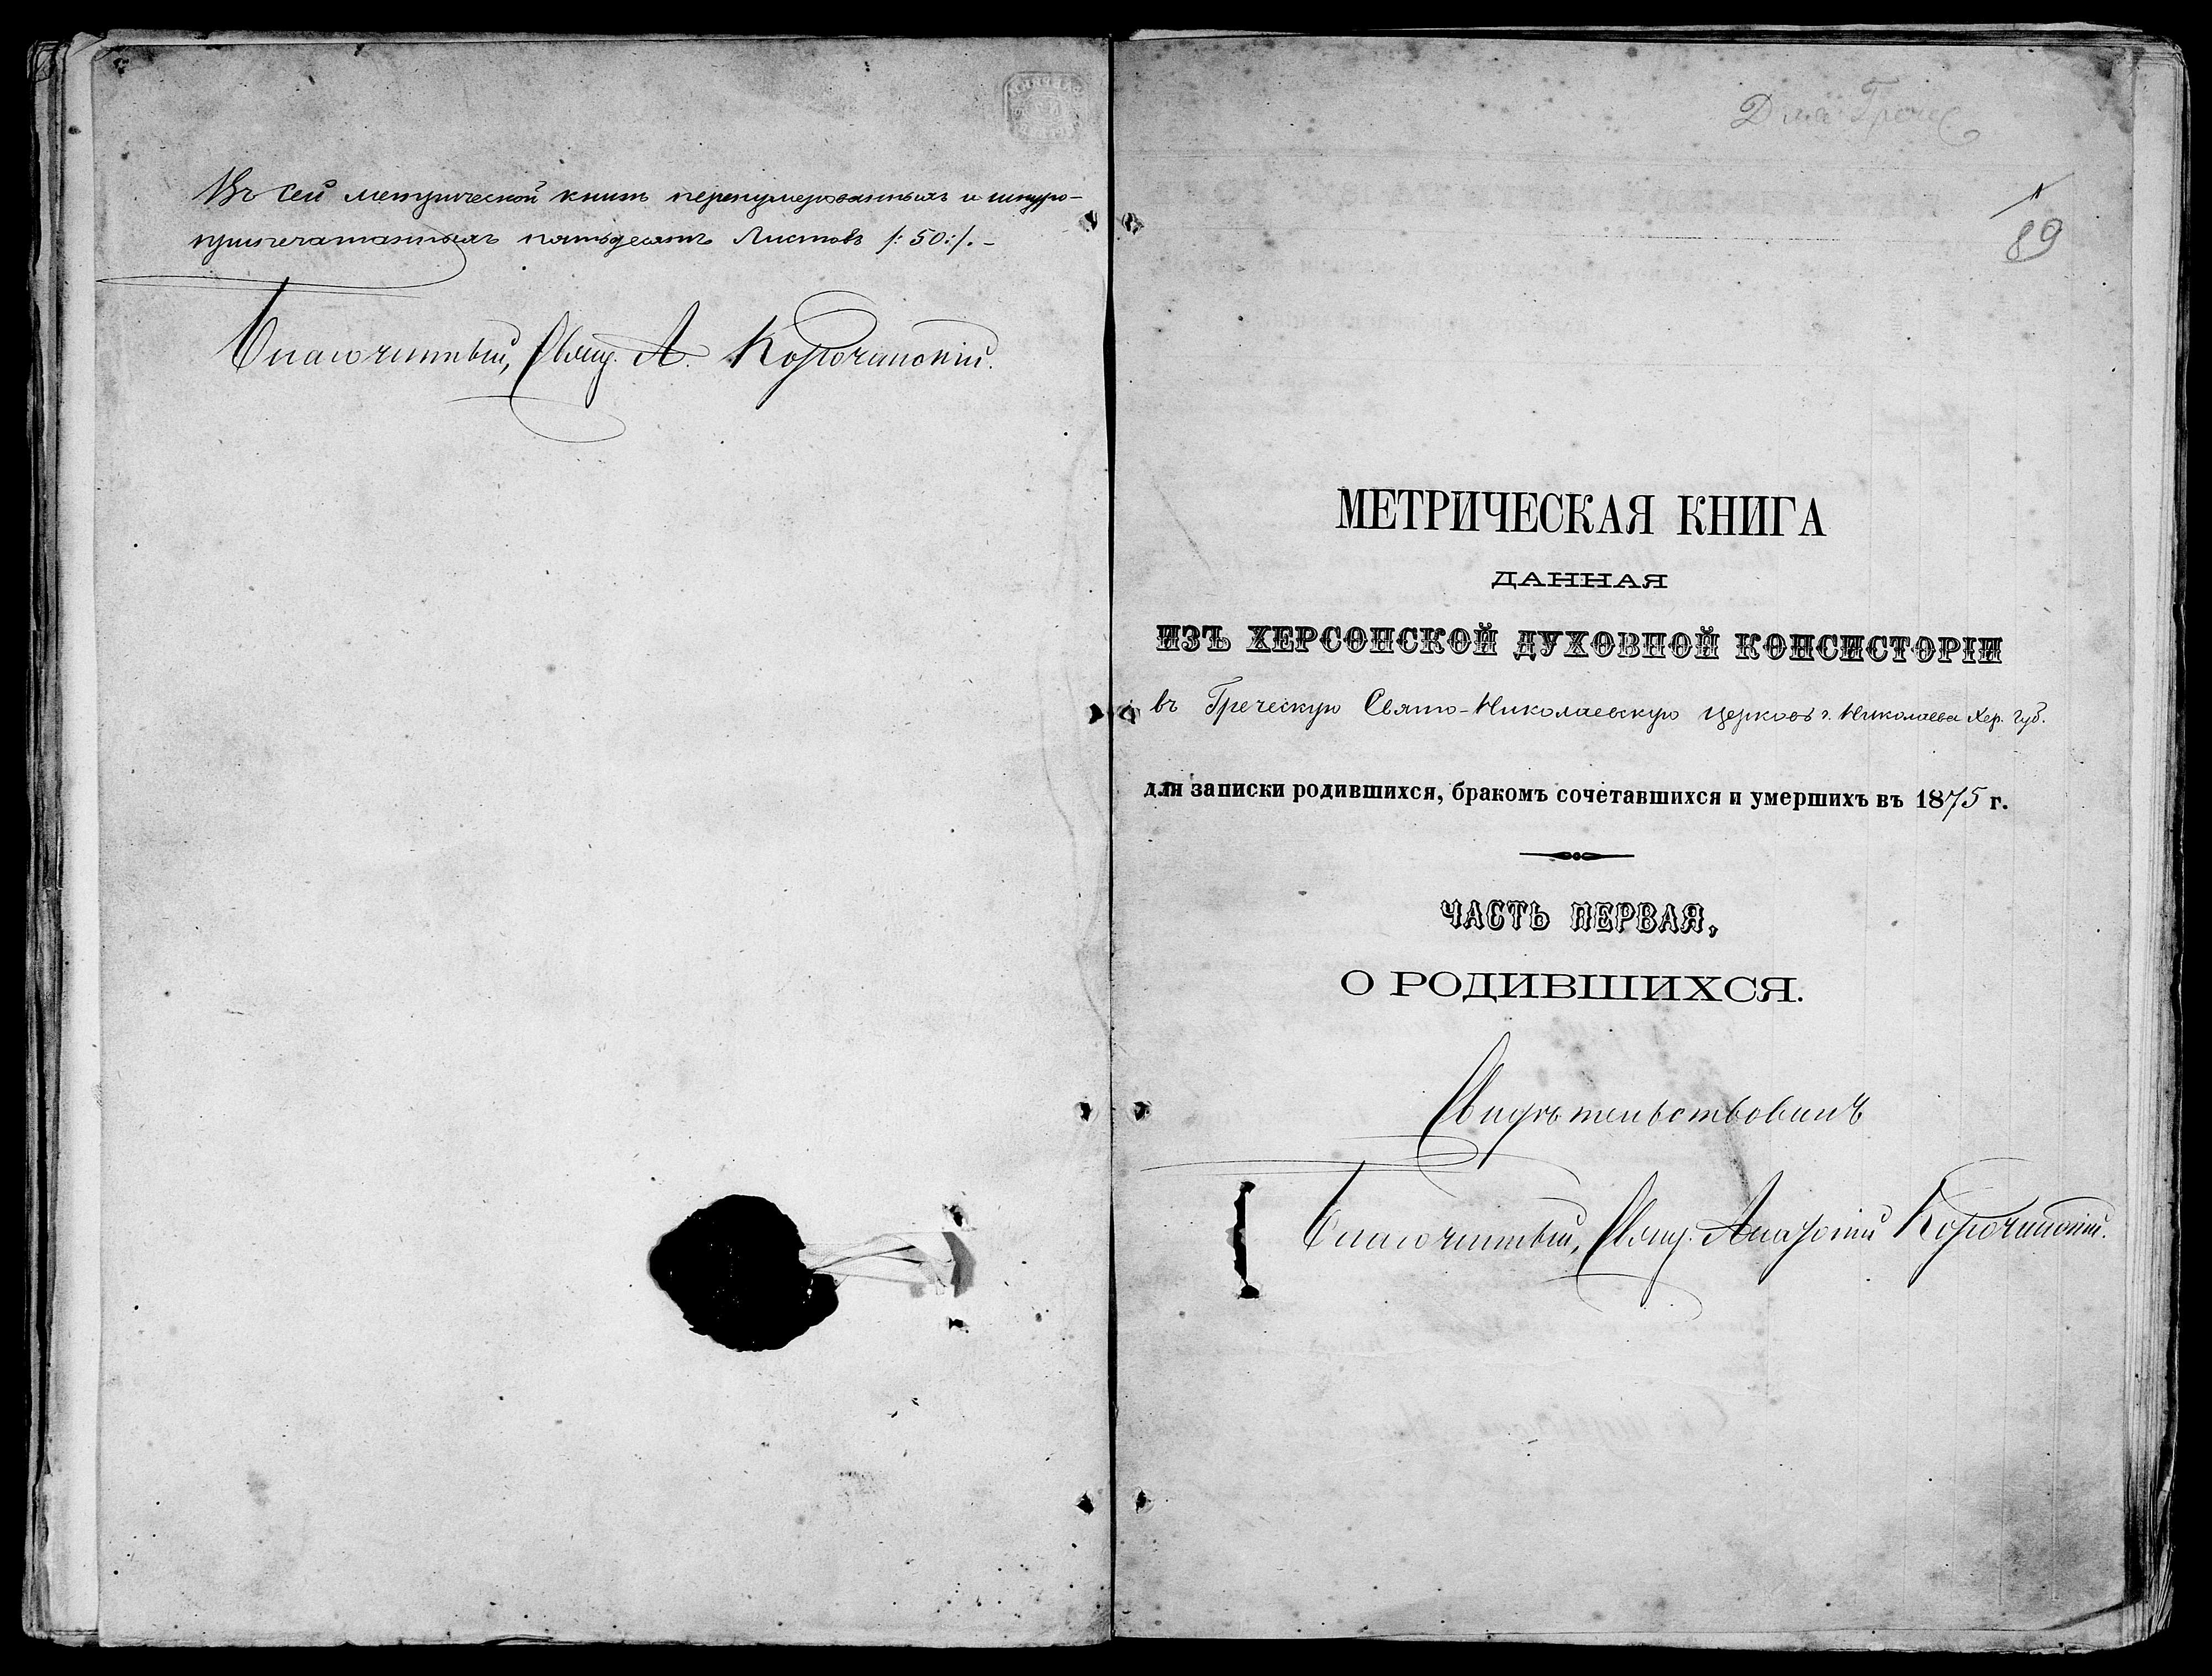 Въ сей метрической книгѣ перенумерованныхъ и шнуро-
припечатанныхъ пятьдесятъ Листовъ /: 50 :/. –
Благочинный, Свящ. А. Корочанскій.
Для Гречес
1
89
МЕТРИЧЕСКАЯ КНИГА
ДАННАЯ
ИЗЪ ХЕРСОНСКОЙ ДУХОВНОЙ КОНСИСТОРІИ
въ Греческую Свято-Николаевскую церковь г. Николаева Хер. губ.
для записки родившихся, бракомъ сочетавшихся и умершихъ въ 1875 г.
ЧАСТЬ ПЕРВАЯ,
О РОДИВШИХСЯ.
Свидѣтельствовалъ
Благочинный, Свящ. Корочанскій.